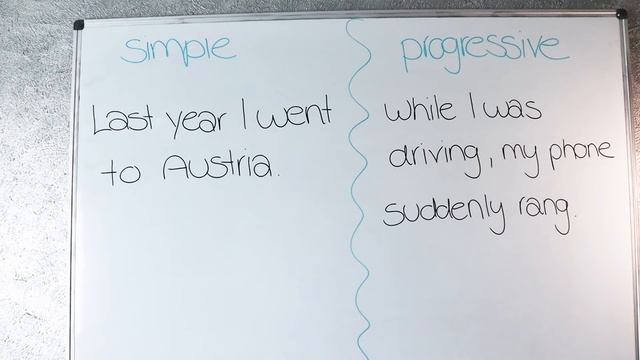 simple
Last year I went
to Austria.
progressive
while I was
driving, my phone
suddenly rang.